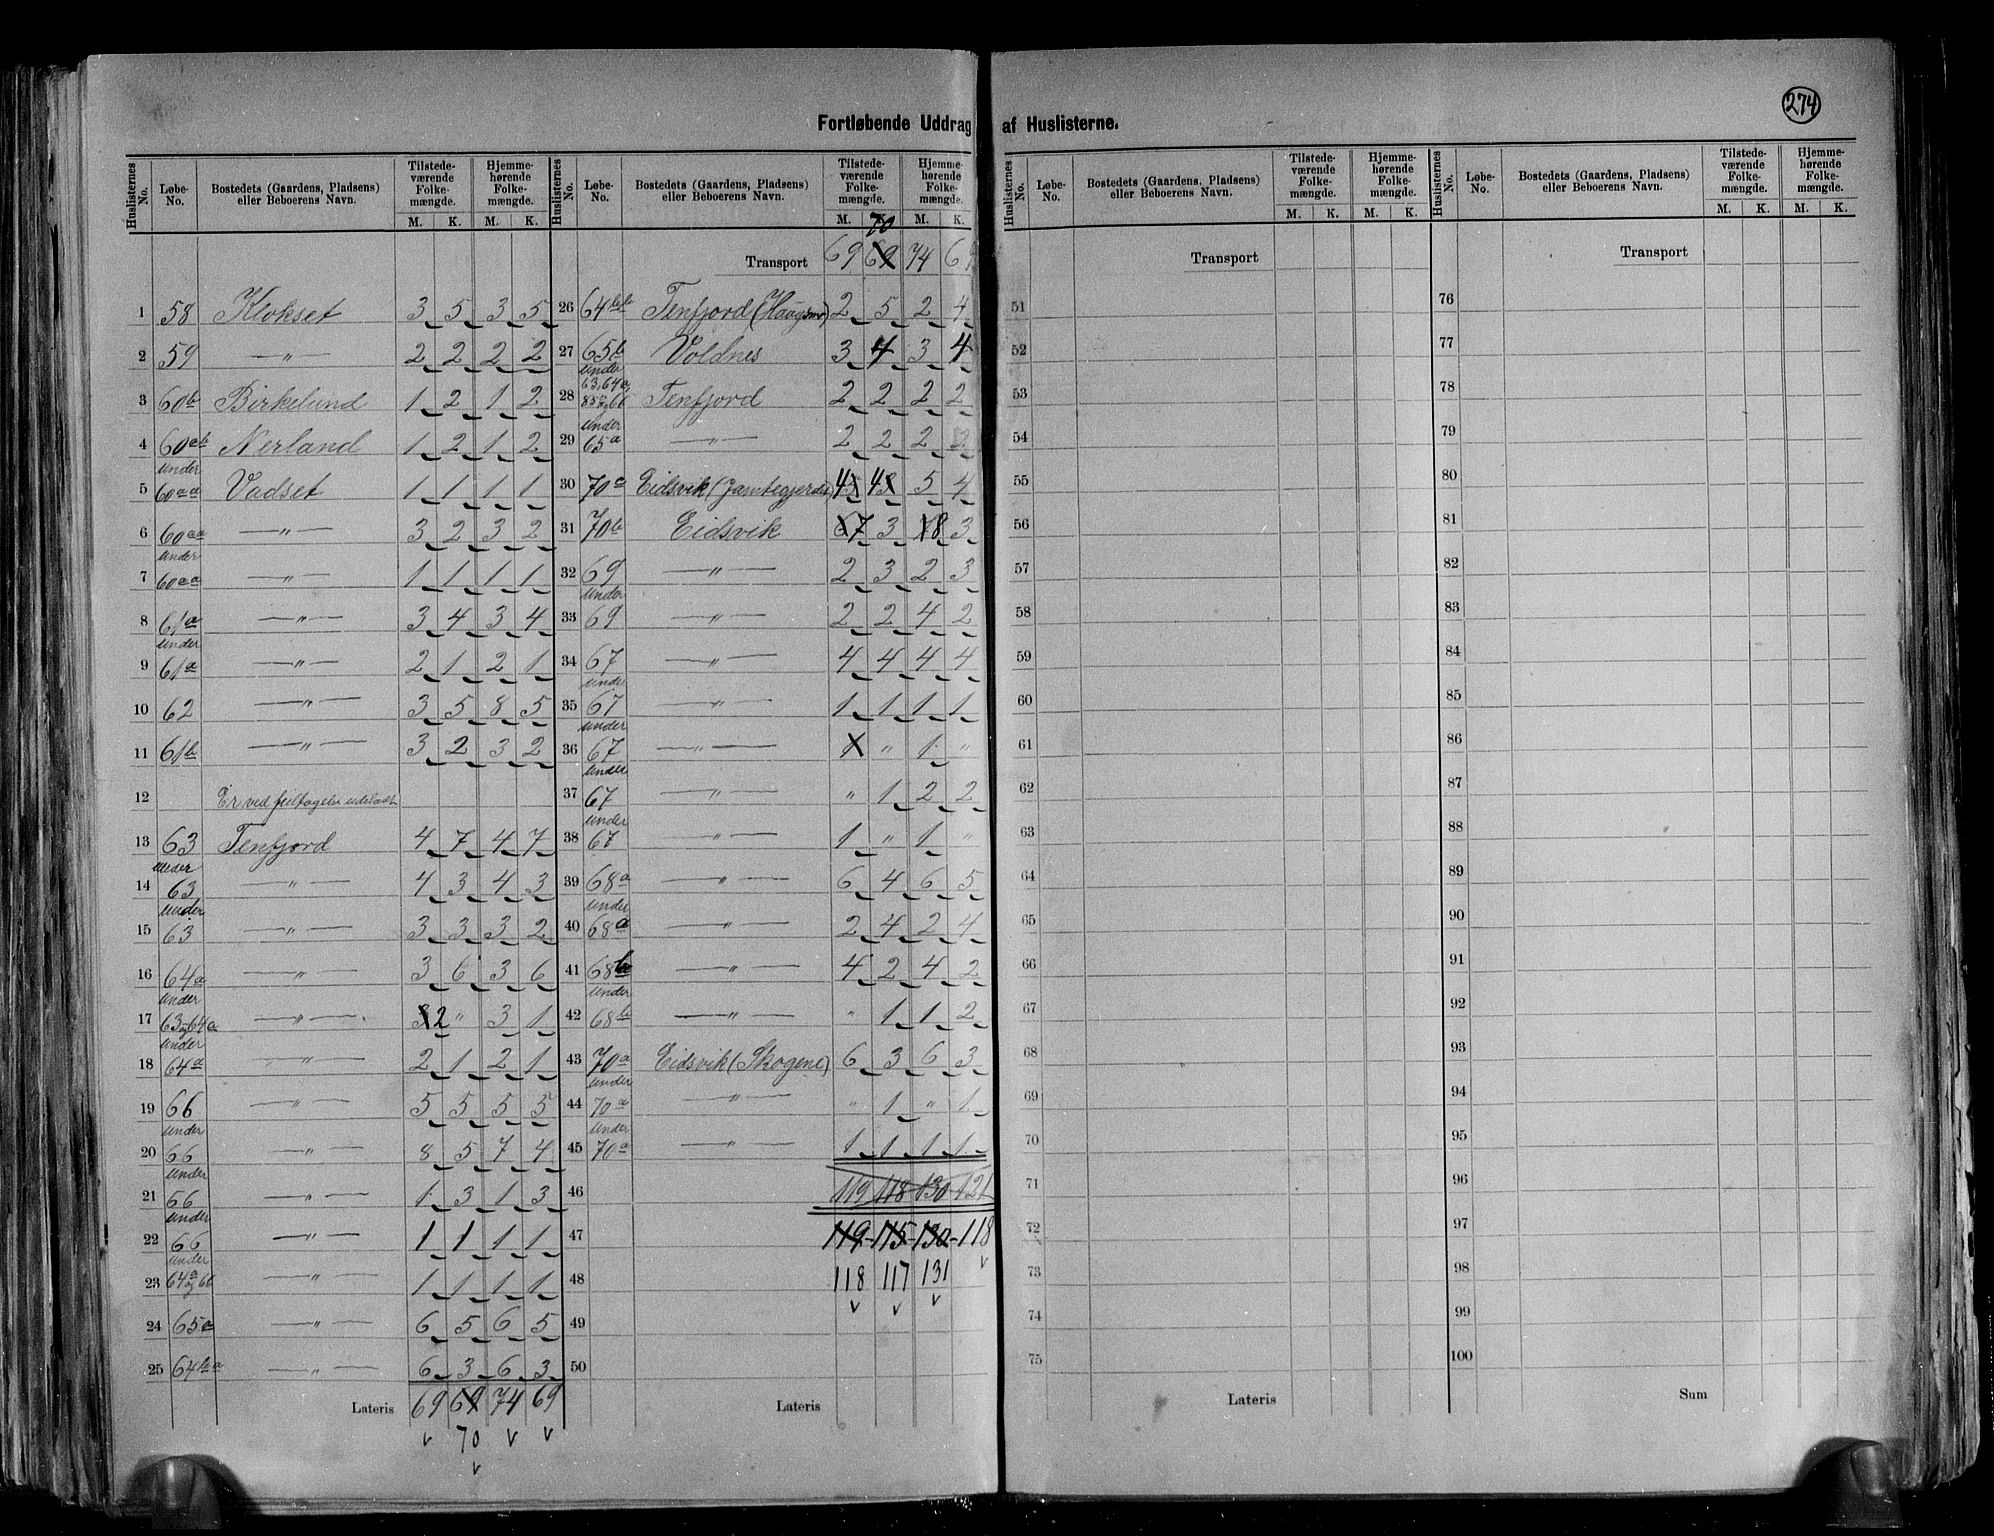 274
Fortløbende Uddrag af Huslisterne.
Huslisternes No. Løbe-No. Bostedets (Gaardens, Pladsens) eller Beboerens Navn. Tilstedeværende Folkemængde. M. K. Hjemmehørende Folkemængde. M. K.
1 58 Klokset 3 5 3 5
2 59 —"— 2 2 2 2
3 60b Birkelund 1 2 1 2
4 60ab Nerland 1 2 1 2
5 under 60aa Vadset 1 1 1 1
6 60aa —"— 3 2 3 2
7 under 60aa —"— 1 1 1 1
8 61a —"— 3 4 3 4
9 under 61a —"— 2 1 2 1
10 62 —"— 3 5 8 5
11 61b —"— 3 2 3 2
12 Er ved feiltagelse udeladt
13 63 Tenfjord 4 7 4 7
14 under 63 —"— 4 3 4 3
15 under 63 —"— 3 3 3 2
16 64a —"— 3 6 3 6
17 under 63 og 64a —"— 2 " 3 1
18 under 64a —"— 2 1 2 1
19 66 —"— 5 5 5 5
20 under 66 —"— 8 5 7 4
21 under 66 —"— 1 3 1 3
22 under 66 —"— 1 1 1 1
23 under 64a og 66 —"— 1 1 1 1
24 65a —"— 6 5 6 5
25 64ba —"— 6 3 6 3
Lateris 69 69 74 69
70
Huslisternes No. Løbe-No. Bostedets (Gaardens, Pladsens) eller Beboerens Navn. Tilstedeværende Folkemængde. M. K. Hjemmehørende Folkemængde. M. K.
70
Transport 69 69 74 69
26 64bb Tenfjord 2 5 2 4
27 65b Voldnes 3 4 3 4
28 under 63, 64a, og 66 Tenfjord 2 2 2 2
29 under 65a —"— 2 2 2 2
30 70a Eidsvik 4 4 5 4
31 70b Eidsvik 7 3 8 3
32 69 —"— 2 3 2 3
33 under 69 —"— 2 2 4 2
34 67 —"— 4 4 4 4
35 under 67 —"— 1 1 1 1
36 under 67 —"— " 1 "
37 under 67 —"— " 1 2 2
38 under 67 —"— 1 " 1 "
39 68a —"— 6 4 6 5
40 under 68a —"— 2 4 2 4
41 68b —"— 4 2 4 2
42 under 68b —"— " 1 1 2
43 70a Eidsvik (Skogene) 6 3 6 3
44 under 70a —"— " 1 " 1
45 under 70a —"— 1 1 1 1
46 119 118 130 121
47 119 - 115 - 130 - 118
48 118 117 131
49
50
Lateris
Huslisternes No. Løbe-No. Bostedets (Gaardens, Pladsens) eller Beboerens Navn. Tilstedeværende Folkemængde. M. K. Hjemmehørende Folkemængde. M. K.
Transport
51
52
53
54
55
56
57
58
59
60
61
62
63
64
65
66
67
68
69
70
71
72
73
74
75
Lateris
Huslisternes No. Løbe-No. Bostedets (Gaardens, Pladsens) eller Beboerens Navn. Tilstedeværende Folkemængde. M. K. Hjemmehørende Folkemængde. M. K.
Transport
76
77
78
79
80
81
82
83
84
85
86
87
88
89
90
91
92
93
94
95
96
97
98
99
100
Sum